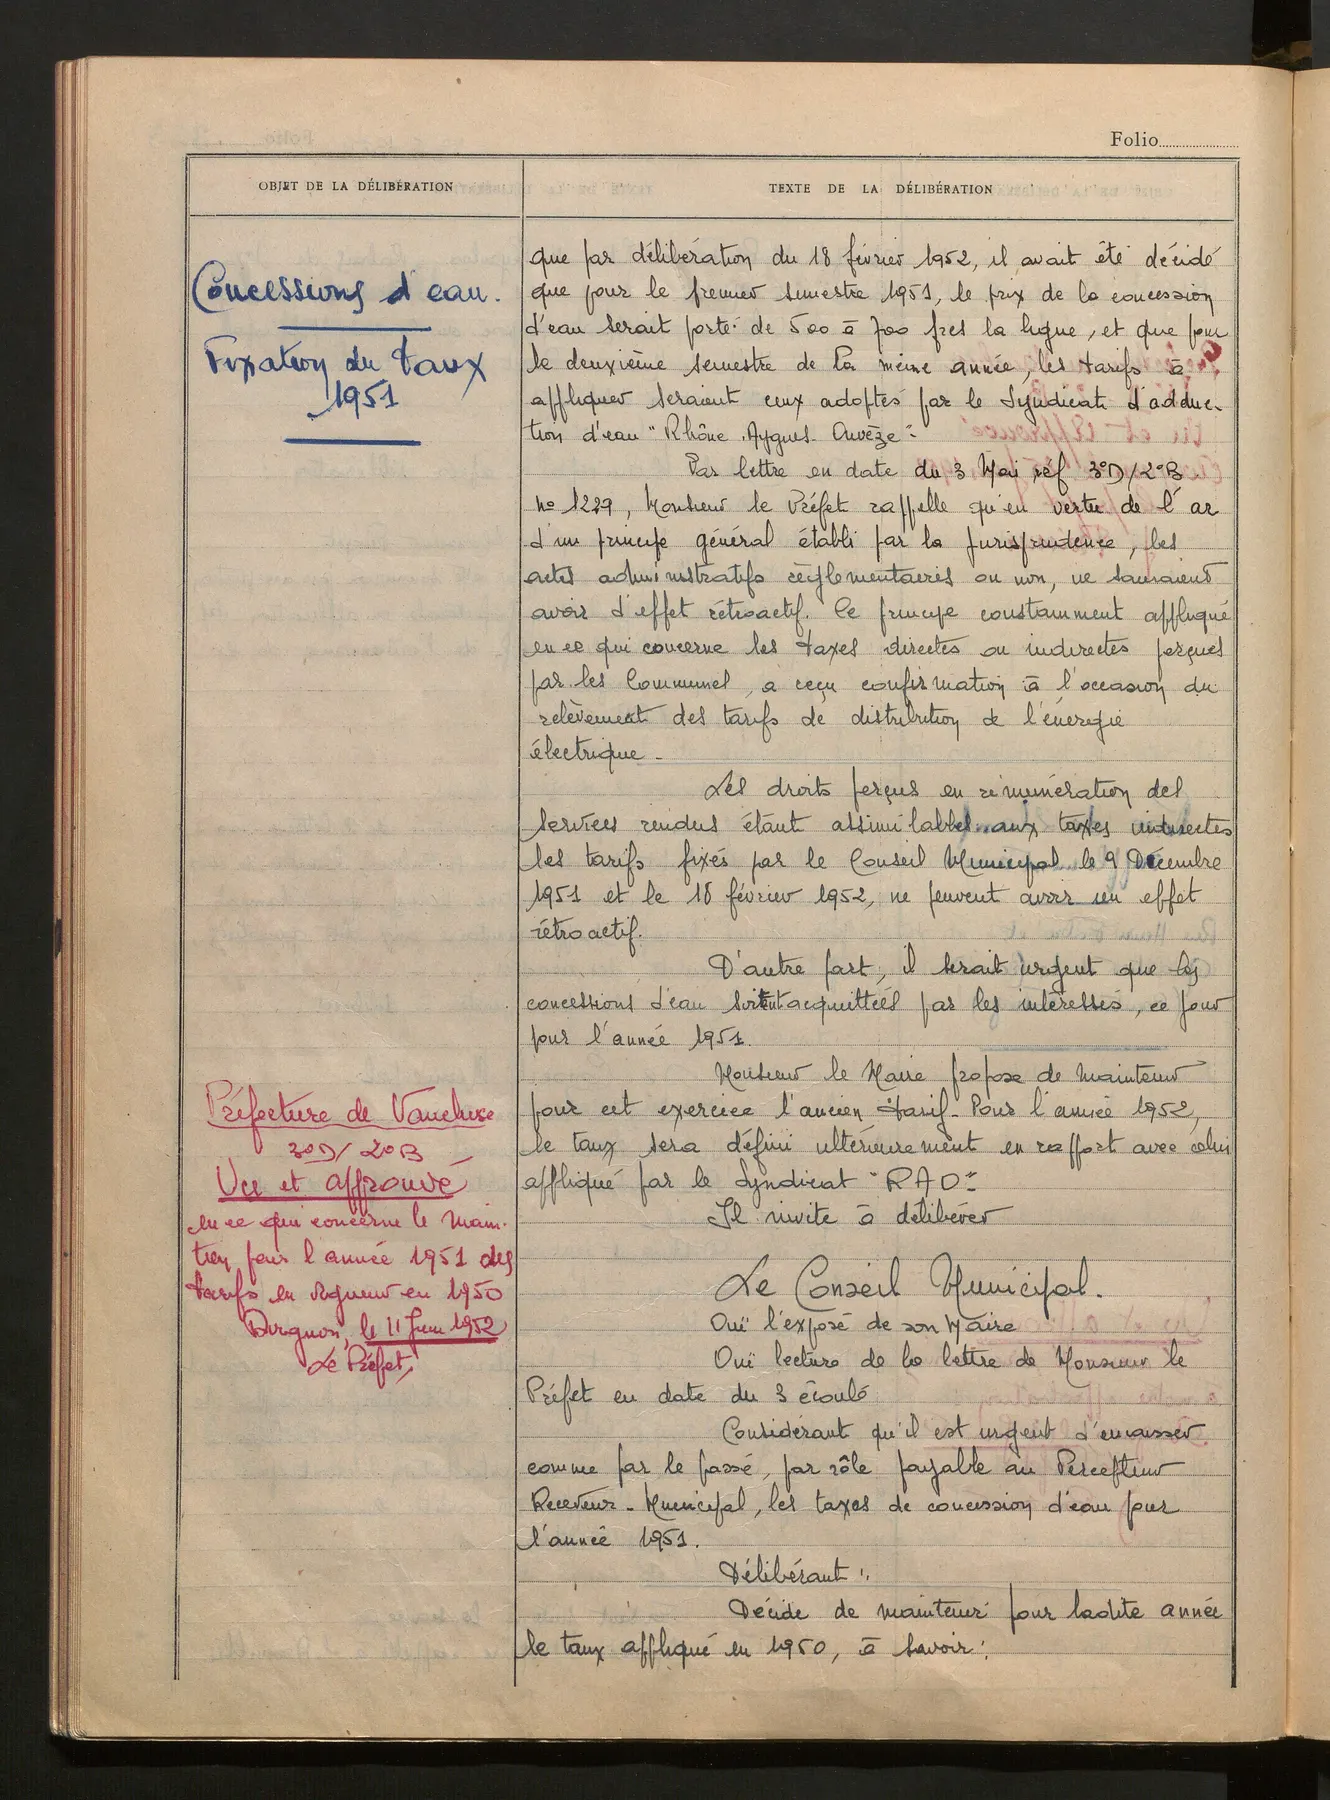 Folio
OBJET DE LA DÉLIBÉRATION
TEXTE DE LA DÉLIBÉRATION
Concessions d'eau.
Fixation du taux
1951
que par délibération du 18 février 1952, il avait été décidé
que pour le premier semestre 1951, le prix de la concession
d'eau serait porté de 500 à 700 frcs la ligne, et que pour
le deuxième semestre de la même année, les tarifs à
appliquer seraient ceux adoptés par le Syndicat d'adduc-
tion d'eau "Rhône Aygues Ouvèze".
Par lettre en date du 3 Mai réf 3°D/2°B
No 1229, Monsieur le Préfet rappelle qu'en vertu de l'ar
d'un principe général établi par la jurisprudence, les
actes administratifs réglementaires ou non, ne sauraient
avoir d'effet rétroactif. Ce principe constamment appliqué
en ce qui concerne les taxes directes ou indirectes perçues
par les Communes, a reçu confirmation à l'occasion du
relèvement des tarifs de distribution de l'énergie
électrique.
Les droits perçus en rémunération des
services rendus étant assimilables aux taxes indirectes
les tarifs fixés par le Conseil Municipal le 9 Décembre
1951 et le 18 février 1952, ne peuvent avoir un effet
rétroactif.
D'autre part, il serait urgent que les
concessions d'eau soient acquittées par les intéressés, ce pour
pour l'année 1951.
Monsieur le Maire propose de maintenir
pour cet exercice l'ancien tarif. Pour l'année 1952,
le taux sera défini ultérieurement en rapport avec celui
appliqué par le Syndicat "RAO"
Il invite à délibérer
Le Conseil Municipal.
Ouï l'exposé de son Maire
Ouï lecture de la lettre de Monsieur le
Préfet en date du 3 écoulé
Considérant qu'il est urgent d'encaisser
comme par le passé, par rôle payable au Percepteur
Receveur-Municipal, les taxes de concession d'eau pour
l'année 1951.
Délibérant :
Décide de maintenir pour ladite année
le taux appliqué en 1950, à savoir :
Préfecture de Vaucluse
3°D/2°B
Vu et approuvé
en ce qui concerne le main-
tien pour l'année 1951 des
tarifs en vigueur en 1950
Avignon, le 11 Juin 1952
Le Préfet,